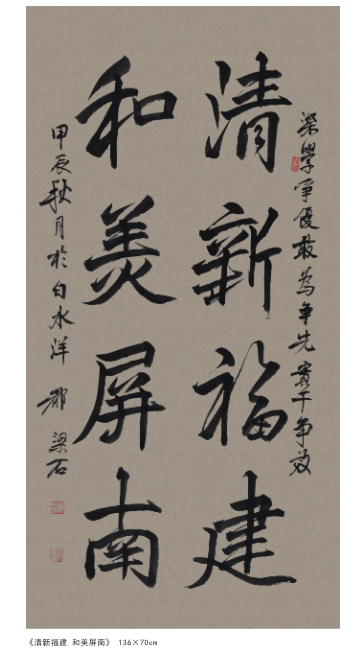 深學爭優敢為爭先實干爭效
清新福建
和美屏南
甲辰秋月於白水洋 都梁石
《清新福建 和美屏南》 136×70cm